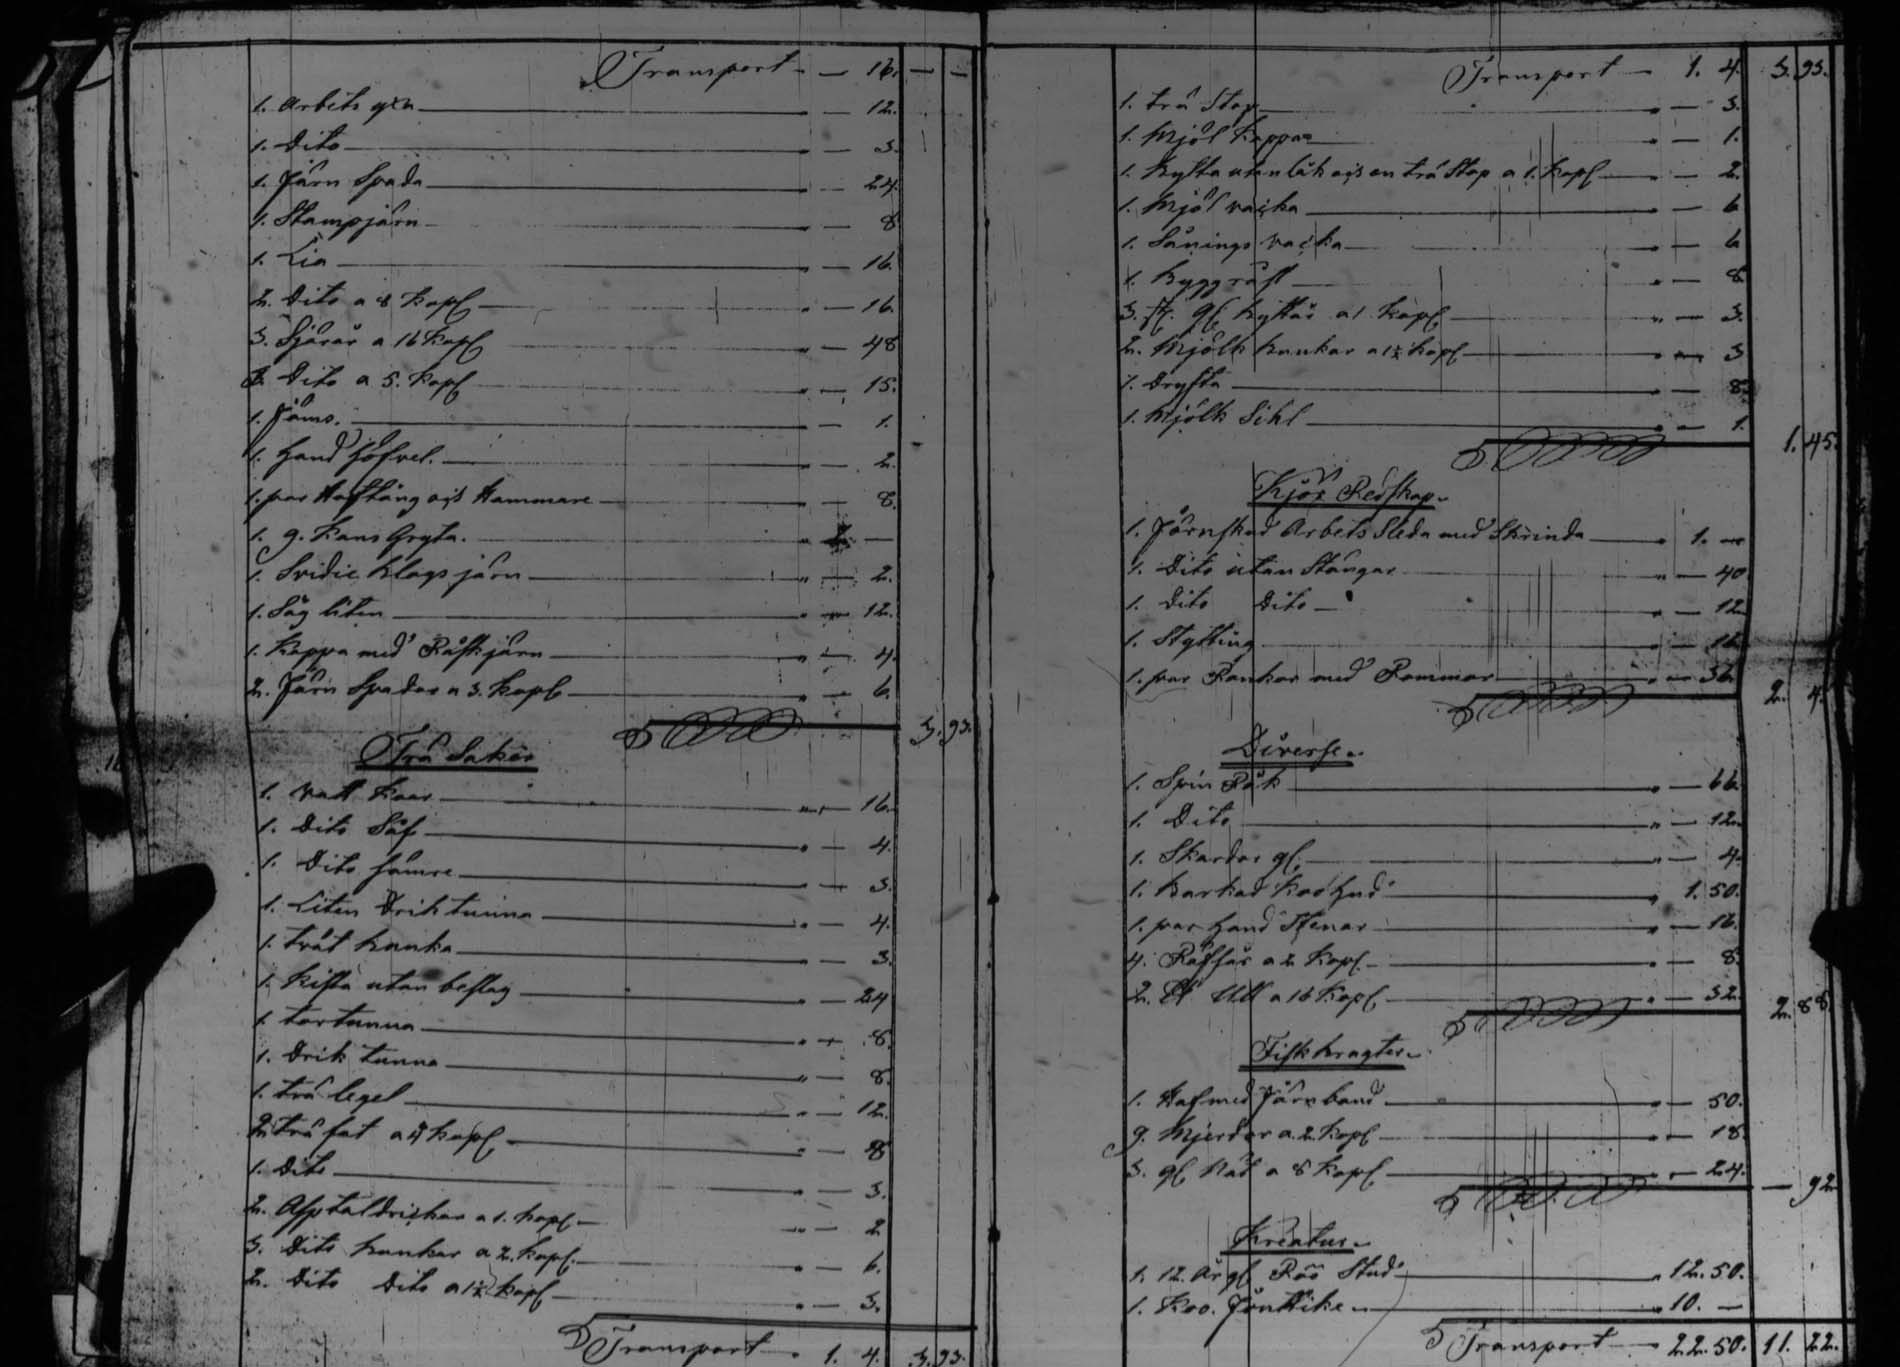 Transport — 16. — —
1. Arbets yxa — " — 12.
1. Dito — " — 3.
1. Järn Spada — " — 24.
1. Stampjärn — " — 8
1. Lia — " — 16.
2. Dito a 8 Kopf — " — 16.
3. Sjäror a 16 Kopf — " — 48
3. Dito a 5. Kopf — " — 15.
1. Jäms. — " — 1.
1. Hand höfvel. — " — 2.
1. par Hoftång ojs Hammare — " — 8.
1. g. Kans Gryta. — " 1. —
1. Klags järn — " — 2.
1. Såg liten — " — 12.
1. Kappa med Råskjärn — " — 4.
2. Järn Spador a 3. Kopf — " — 6.
3. 93.
Trä Saker
1. Vatt Kaar — " — 16.
1. Dito Såf — " — 4.
1. Dito sämre — " — 3.
1. Liten Drik tunna — " — 4.
1. trät hanka — " — 3.
1. Kista utan beslag — " — 24
1. tortunna — " — 8.
1. Drik tunna — " — 8.
1. trä legel — " — 12.
2. trä fat a 4 kopf — " — 8
1. Dito — " — 3.
2. a 1. kopf — " — 2
3. Dito hankar a 2. kopf. — " — 6.
2. Dito Dito a 1½ kopf — " — 3.
Transport — 1. 4. 3. 93.
Transport — 1. 4. 3. 93.
1. trä Stop — " — 3.
1. Mjöl Kappa — " — 1.
1. Bytta utan låk ojs en trä Stop a 1. kopf — " — 2.
1. Mjöl vacka — " — 6
1. Sånings vacka — " — 6
1. — " — 8
3. st. gl. byttor a 1 Kopf — " — 3.
2. Mjölk hankar a 1½ kopf — " — 3
1. Dryfta — " — 8.
1. Mjölk Sihl — " — 1.
1. 45.
Kjör Redskap
1. Järnskod Arbets Släda med Skrinda — " 1. —
1. Dito utan Stänger — " — 40
1. Dito Dito — " — 12
1. Stytting — " — 16
1. par Rankor med Rammar — " — 36.
2. 4.
Diverse
1. Spin Råk — " — 66.
1. Dito — " — 12.
1. Skardor gl. — " — 4.
1. Barkad Koo Hud — " 1. 50.
1. par Hand Stenar — " — 16.
4. Räffsor a 2 Kopf. — " — 8.
2. Ull a 16 Kopf — " — 32.
2. 88
Fisk bragter
1. Haf med Järnband — " — 50.
9. Mjerdor a. 2. Kopf — " — 18.
3. gl. Nät a 8 Kopf — " — 24.
— 92
Kreatur
1. 12. År gl. Röö Stud — " 12. 50.
1. Koo. — " 10. —
Transport — 22. 50. 11. 22.